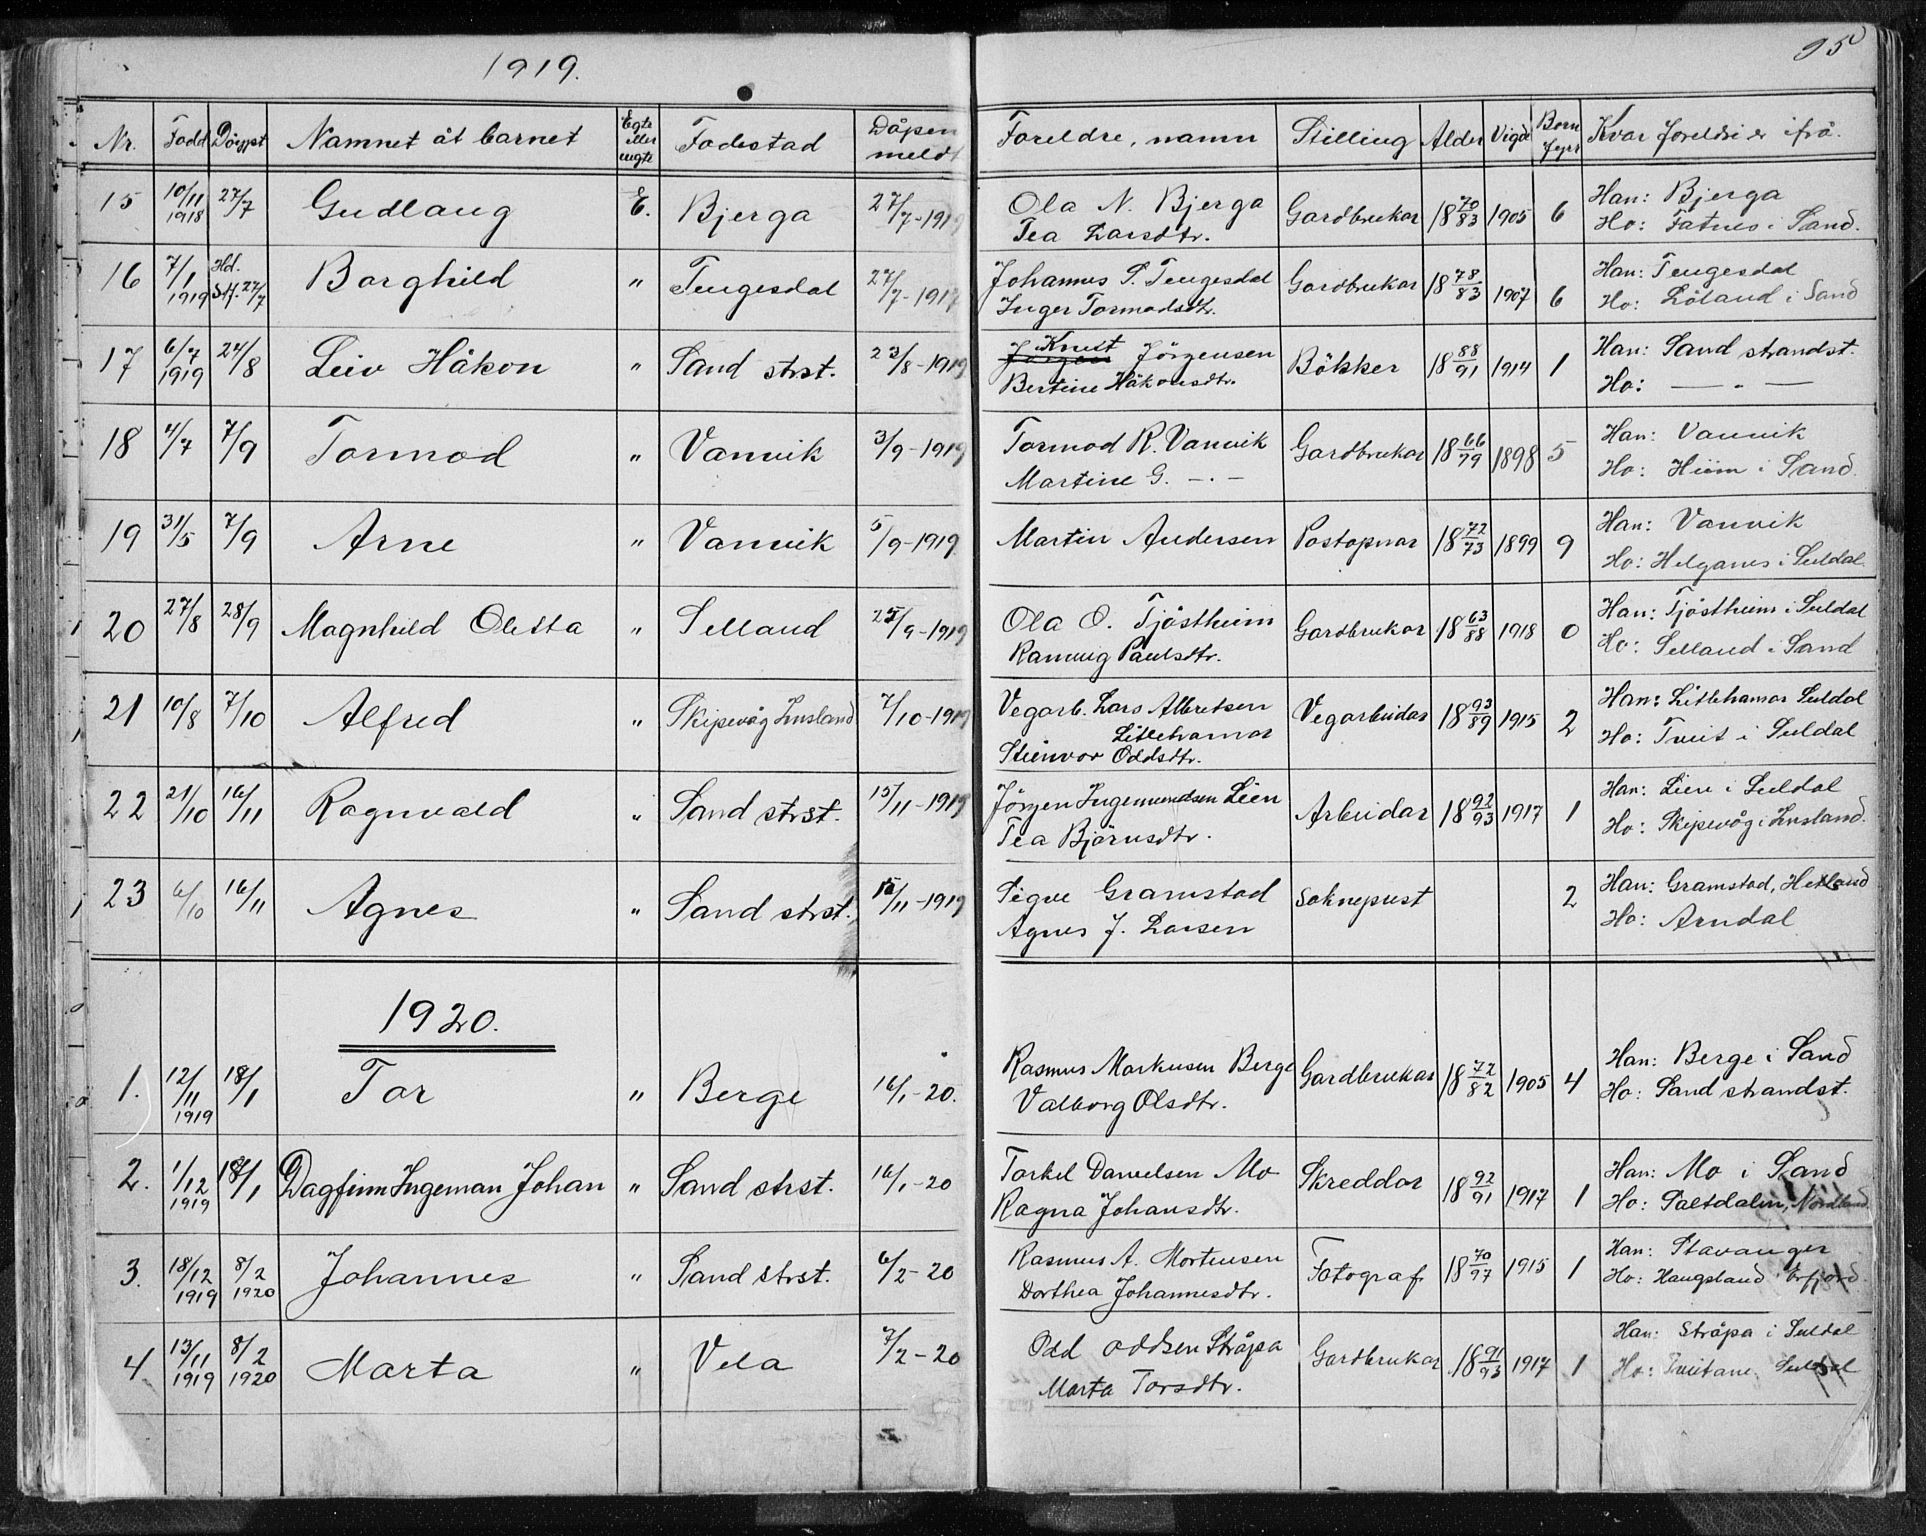 1919.
95
Nr. Fødd Döypt Namnet åt barnet Egte eller uegte Fødestad Dåpen meldt Foreldre, namn Stilling Alder Vigde Born fyrr Kvar foreldri er ifrå.
15 10/11 1918 27/7 Gudlaug E. Bjerga 27/7-1919 Ola N. Bjerga Gardbrukar 18 70/83 1905 6 Han: Bjerga
Tea Larsdtr. Ho: Fatnes i Sand.
16 7/1 1919 Hd. Stf. 27/7 Borghild " Tengesdal 27/7-1917 Johannes S. Tengesdal Gardbrukar 18 78/83 1907 6 Han: Tengesdal
Inger Tormodsdtr. Ho: Löland i Sand
17 6/7 1919 24/8 Leiv Håkon " Sand strst. 23/8-1919 Jørgen Knut Jörgensen Bökker 18 88/91 1914 1 Han: Sand strandst.
Bertine Håkonsdtr. Ho: — " —
18 4/7 7/9 Tormod " Vanvik 3/9-1919 Tormod R. Vanvik Gardbrukar 18 66/79 1898 5 Han: Vanvik
Martine G. — " — Ho: Hiim i Sand.
19 31/5 7/9 Arne " Vanvik 5/9-1919 Martin Andersen Postopnar 18 72/73 1899 9 Han: Vanvik
Ho: Helganes i Suldal.
20 27/8 28/9 Magnhild Oletta " Selland 25/9-1919 Ola O. Tjöstheim Gardbrukar 18 63/88 1918 0 Han: Tjöstheim i Suldal
Ranveig Paulsdtr. Ho: Selland i Sand
21 10/8 7/10 Alfred " Skipevåg Imsland 7/10-1919 Vegarb. Lars Albretsen Vegarbeidar 18 93/89 1915 2 Han: Litlehamar Suldal
Litlehamar
Steinvor Oddsdtr. Ho: Tveit i Suldal
22 21/10 16/11 Ragnvald " Sand strst. 15/11-1919 Jörgen Ingemundsen Lien Arbeidar 18 92/93 1917 1 Han: Lien i Suldal
Tea Björnsdtr. Ho: Skipevåg i Imsland.
23 6/10 16/11 Agnes " Sand strst. 15/11-1919 Sigve Gramstad Sokneprest 2 Han: Gramstad, Hetland
Agnes J. Larsen Ho: Arndal
1920.
1. 12/11 1919 18/1 Tor " Berge 16/1-20. Rasmus Markusen Berge Gardbrukar 18 72/82 1905 4 Han: Berge i Sand
Valborg Olsdtr. Ho: Sand strandst.
2. 1/12 1919 18/1 Dagfinn Ingeman Johan " Sand strst. 16/1-20 Torkel Danielsen Mo Skreddar 18 92/91 1917 1 Han: Mo i Sand
Ragna Johansdtr. Ho: Saltdalen, Nordland
3. 18/12 1919 8/2 1920 Johannes " Sand strst. 6/2-20 Rasmus A. Mortensen Fotograf 18 70/97 1915 1 Han: Stavanger
Dorthea Johannesdtr. Ho: Haugsland Erfjord.
4. 13/11 1919 8/2 1920 Marta " Vela 7/2-20 Odd Oddsen Stråpa Gardbrukar 18 91/93 1917 1 Han: Stråpa i Suldal
Marta Torsdtr. Ho: Tveitane. Suldal